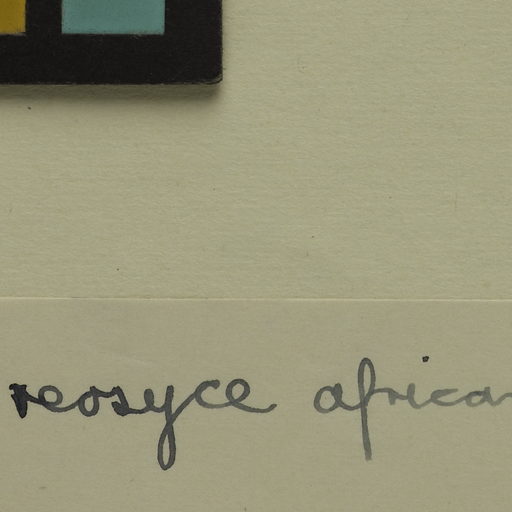 reosyce africa